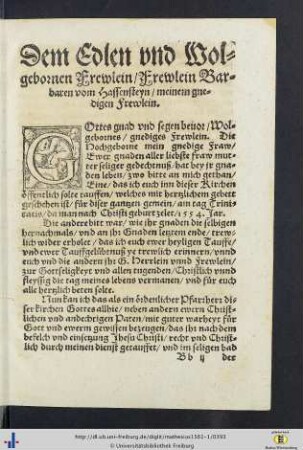 Dem Edlen vnd Wol-
gebornen Frewlein/Frewlein Bar-
baren vom Hassensteyn/ meinem gne-
digen Frewlein.
GOttes gnad vnd segen beuor/ Wol-
gebornes/ gnediges Frewlein. Die
Hochgeborne mein gnedige Fraw/
Ewer gnaden aller liebste fraw mut-
ter seliger gedechtnuß/ hat bey jr gna-
den leben/ zwo bitte an mich gethan/
Eine/ das ich euch inn dieser Kirchen
öffentlich solte tauffen/ welches mit hertzlichem gebet
geschehen ist/ für diser gantzen gemein/ am tag Trini-
tatis/ da man nach Christi geburt zelet/ 1554. Jar.
Die andere bitt war/ wie ihr gnaden die selbigen
hernachmals/ vnd an ihr Gnaden letztem ende/ trew-
lich wider erholet/ das ich euch ewer heyligen Tauffe/
vnd ewer Tauffgelübtnuß ye trewlich erinnern/ vnnd
euch vnd die andern ihr G. Herrlein vnnd Frewlein/
zur Gottseligkeyt vnd allen tugenden/ Christlich vnnd
fleyssig die tag meines lebens vermanen/ vnd für euch
alle hertzlich beten solte.
Nun kan ich das als ein ordenlicher Pfarrherr di-
ser kirchen Gottes allhie/ neben andern ewern Christ-
lichen vnd andechtigen Paten/ mit guter warheyt für
Gott vnd ewerm gewissen bezeugen/ das ihr nach dem
befelch vnd einsetzung Jhesu Christi/ recht vnd Christ-
lich durch meinen dienst getauffet/ vnd im seligen bad
Bb ij der
http://dl.ub.uni-freiburg.de/diglit/mathesius1581-1/0393
© Universitätsbibliothek Freiburg